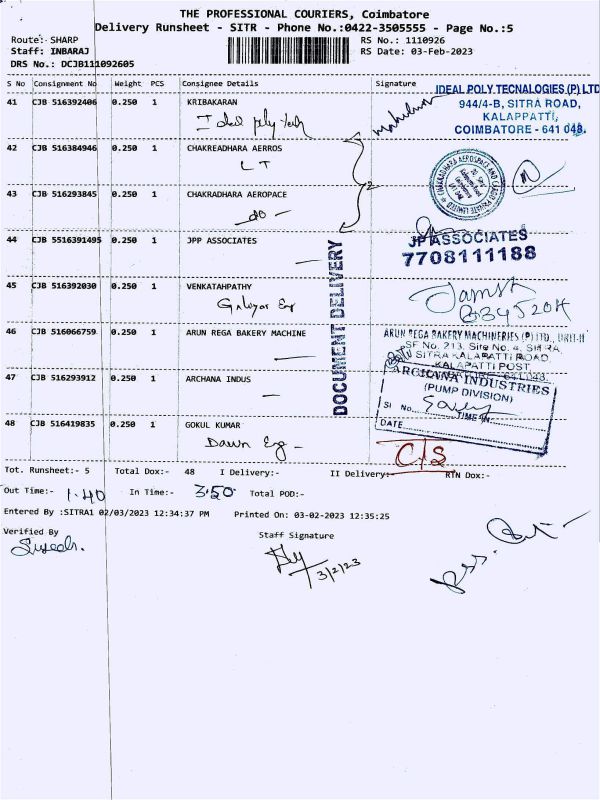 THE PROFESSIONAL COURIERS, Coimbatore
Delivery Runsheet - SITR - Phone No.:0422-3505555 - Page No.:5
Route:- SHARP
RS No.: 1110926
Staff: INBARAJ
RS Date: 03-Feb-2023
DRS No.: DCJB111092605
S No Consignment No Weight PCS Consignee Details Signature
IDEAL POLY TECNALOGIES (P) LTD
944/4-B, SITRA ROAD,
KALAPPATTI,
COIMBATORE - 641 048.
41 CJB 516392406 0.250 1 KRIBAKARAN
Ideal poly tech
42 CJB 516384946 0.250 1 CHAKREADHARA AERROS
LT
2
CHAKRADHARA AEROSPACE AND CARGO PRIVATE LIMITED
43 CJB 516293845 0.250 1 CHAKRADHARA AEROPACE
do -
44 CJB 5516391495 0.250 1 JPP ASSOCIATES
JP ASSOCIATES
7708111188
DOCUMENT DELIVERY
45 CJB 516392030 0.250 1 VENKATAHPATHY
46 CJB 516066759 0.250 1 ARUN REGA BAKERY MACHINE
ARUN REGA BAKERY MACHINERIES (P) LTD., UNIT-II
SF No. 213, Site No. 4, SITRA
SITRA KALAPATTI ROAD,
KALAPATTI POST,
641 048.
47 CJB 516293912 0.250 1 ARCHANA INDUS
ARCHANA INDUSTRIES
(PUMP DIVISION)
Sl No.
TIME IN
DATE
48 CJB 516419835 0.250 1 GOKUL KUMAR
Dawn Eng -
C/S
Tot. Runsheet:- 5 Total Dox:- 48 I Delivery:- II Delivery:- RTN Dox:-
Out Time:- 1.40 In Time:- 3.50 Total POD:-
Entered By :SITRA1 02/03/2023 12:34:37 PM Printed On: 03-02-2023 12:35:25
Verified By
Staff Signature
3/2/23